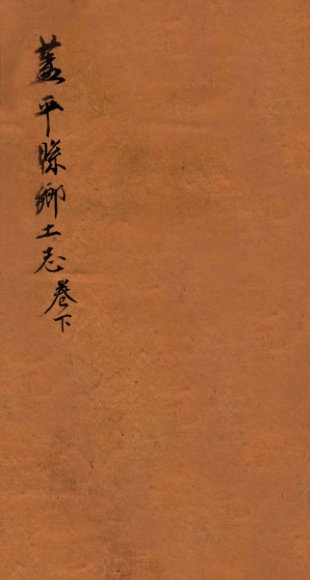 蓋平縣鄉土志卷下